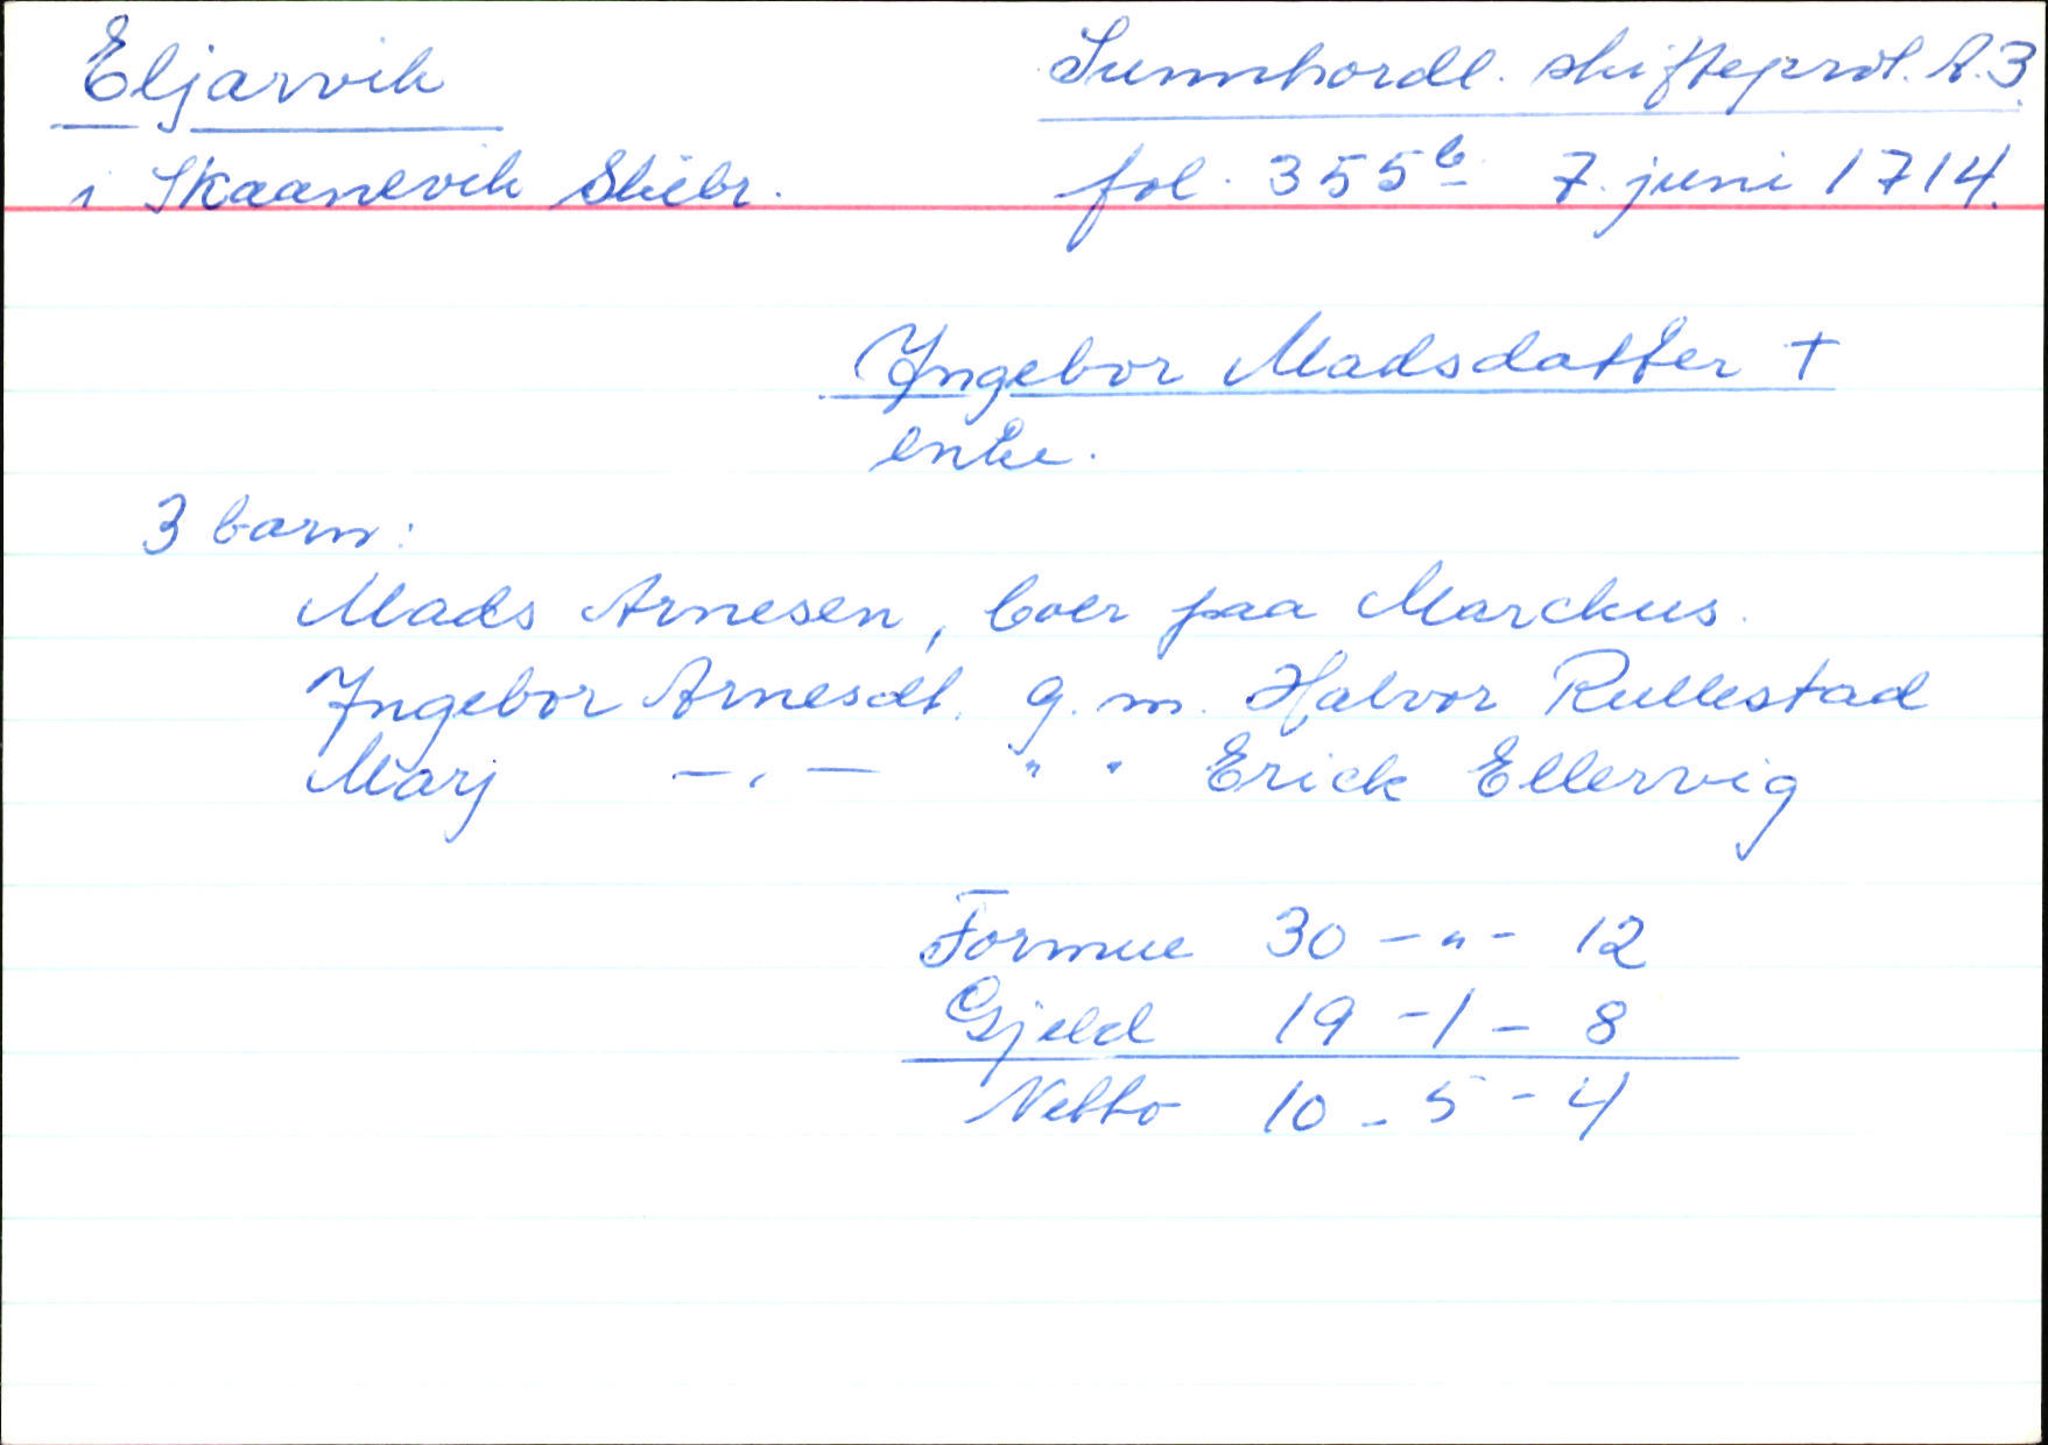 Eljarvik Sunnhordl. skifteprot. A.3.
i Skaanevik Skibr. fol. 355b 7. juni 1714.
Ingebor Madsdatter +
enke.
3 barn:
Mads Arnesen, boer paa Marckus.
Ingebor Arnesdt. g. m. Halvor Rullestad
Marj —"— " " Erick Ellervig
Formue 30 - " - 12
Gjeld 19 - 1 - 8
Netto 10 - 5 - 4